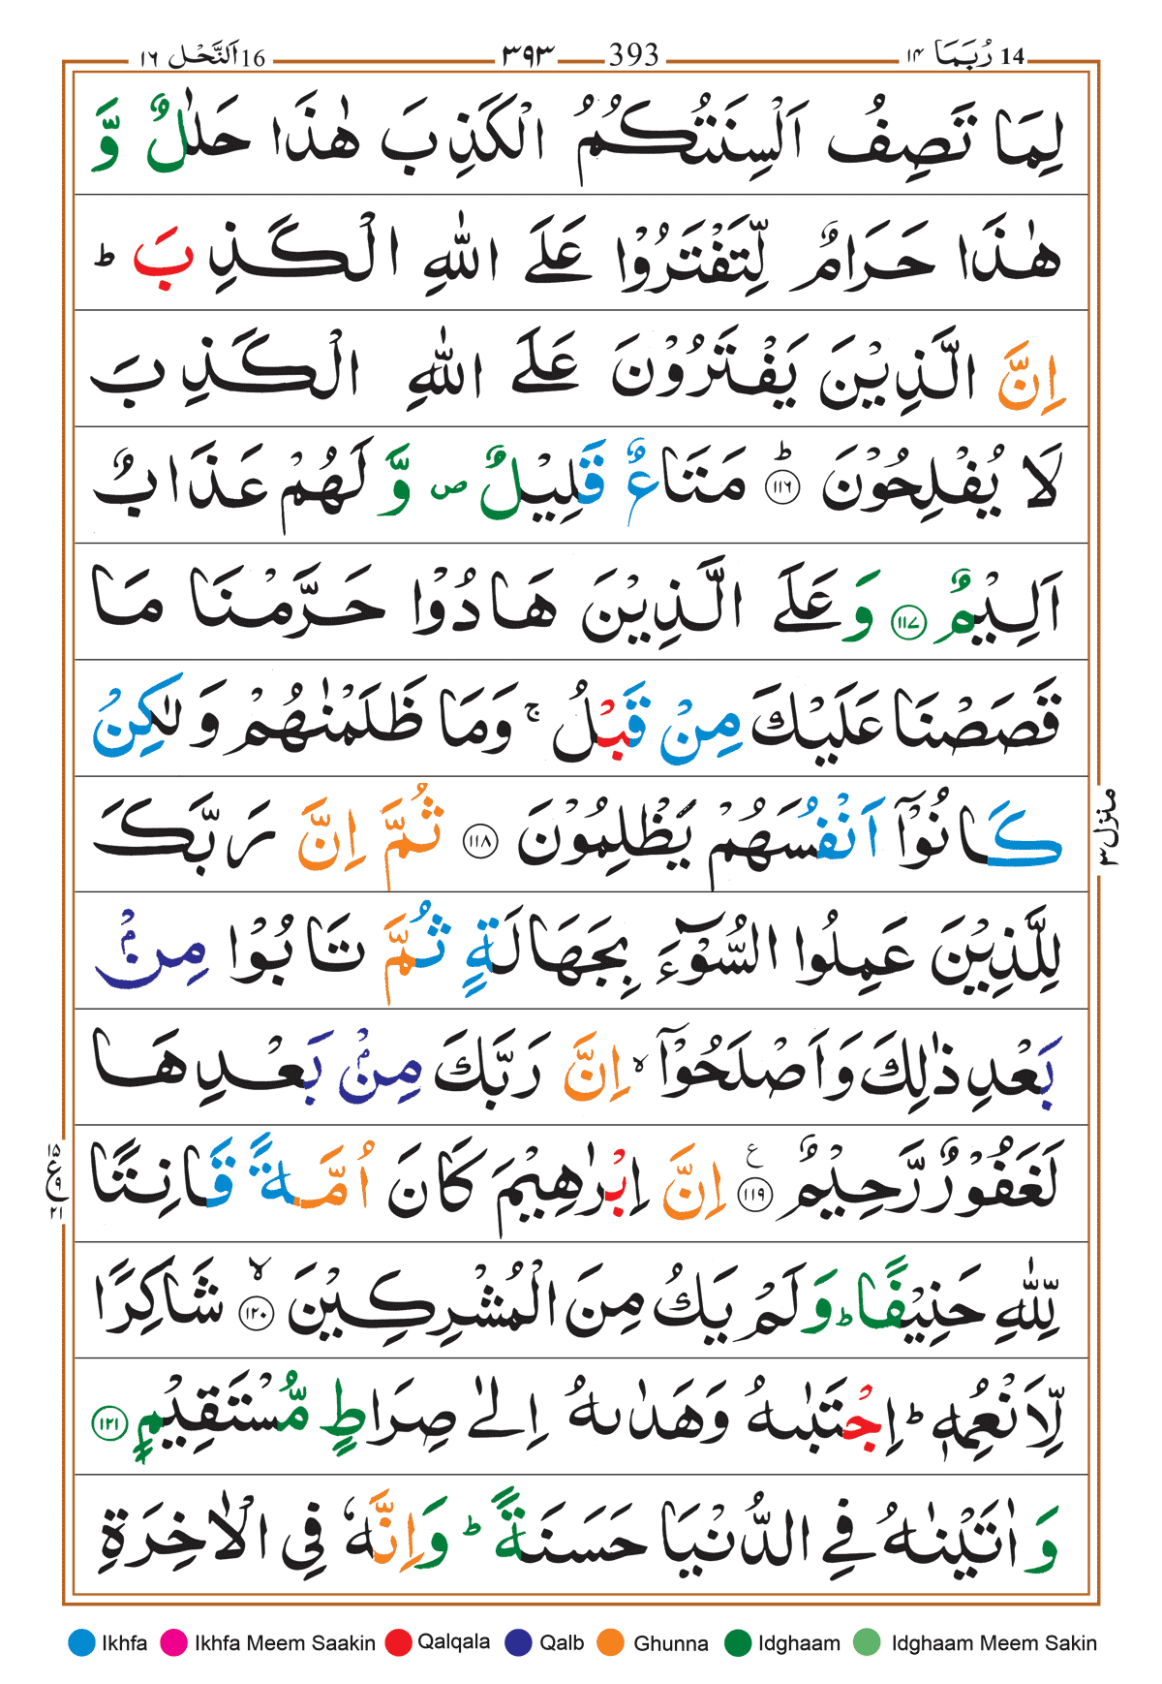 14 رُبَمَا ١٤ 393 ٣٩٣ 16 اَلنَّحْل ١٦
لِمَا تَصِفُ اَلْسِنَتُكُمُ الْكَذِبَ هٰذَا حَلٰلٌ وَّ
هٰذَا حَرَامٌ لِّتَفْتَرُوْا عَلَى اللّٰهِ الْكَذِبَ ؕ
اِنَّ الَّذِيْنَ يَفْتَرُوْنَ عَلَى اللّٰهِ الْكَذِبَ
لَا يُفْلِحُوْنَ ؕ ١١٦ مَتَاعٌ قَلِيْلٌ ص وَّ لَهُمْ عَذَابٌ
اَلِيْمٌ ١١٧ وَ عَلَى الَّذِيْنَ هَادُوْا حَرَّمْنَا مَا
قَصَصْنَا عَلَيْكَ مِنْ قَبْلُ ۚ وَمَا ظَلَمْنٰهُمْ وَلٰكِنْ
كَانُوْۤا اَنْفُسَهُمْ يَظْلِمُوْنَ ١١٨ ثُمَّ اِنَّ رَبَّكَ
لِلَّذِيْنَ عَمِلُوا السُّوْٓءَ بِجَهَالَةٍ ثُمَّ تَابُوْا مِنْۢ
بَعْدِ ذٰلِكَ وَاَصْلَحُوْۤا ۙ اِنَّ رَبَّكَ مِنْۢ بَعْدِهَا
لَغَفُوْرٌ رَّحِيْمٌ ع ١١٩ اِنَّ اِبْرٰهِيْمَ كَانَ اُمَّةً قَانِتًا
لِّلّٰهِ حَنِيْفًا ؕ وَلَمْ يَكُ مِنَ الْمُشْرِكِيْنَ ۙ ١٢٠ شَاكِرًا
لِّاَنْعُمِهٖ ؕ اِجْتَبٰىهُ وَهَدٰىهُ اِلٰى صِرَاطٍ مُّسْتَقِيْمٍ ١٢١
وَ اٰتَيْنٰهُ فِى الدُّنْيَا حَسَنَةً ؕ وَاِنَّهٗ فِى الْاٰخِرَةِ
منزل ٣
١٥
ع
٩
٢١
Ikhfa Ikhfa Meem Saakin Qalqala Qalb Ghunna Idghaam Idghaam Meem Sakin